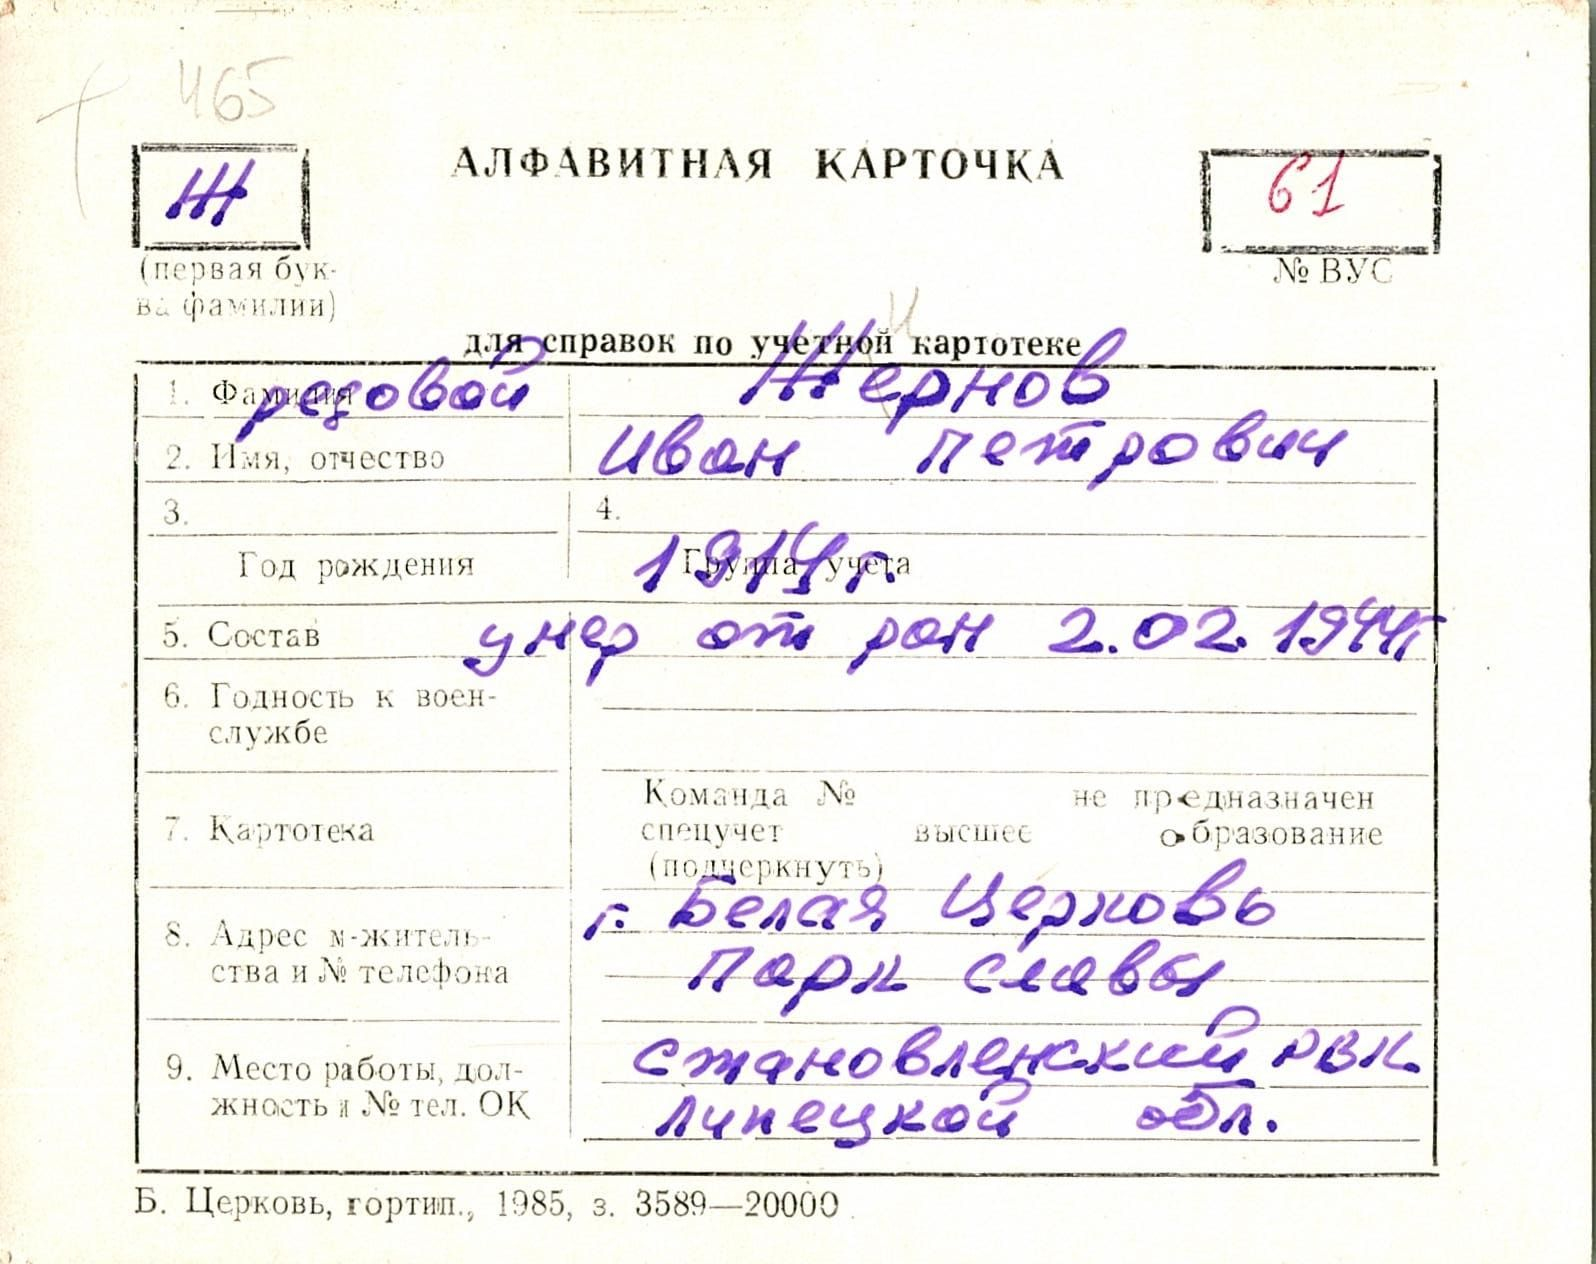 465
Ж
АЛФАВИТНАЯ КАРТОЧКА
61
(первая бук-
ва фамилии)
№ ВУС
для справок по учетной картотеке
и
1. Фамилия рядовой Жернов
2. Имя, отчество Иван Петрович
3. 4.
Год рождения Группа учета 1914 г.
5. Состав умер от ран 2.02.1944г
6. Годность к воен-
службе
7. Картотека
Команда № не предназначен
спецучет высшее образование
(подчеркнуть)
8. Адрес м-житель-
ства и № телефона
г. Белая Церковь
Парк славы
9. Место работы, дол-
жность и № тел. ОК
Становлянский РВК
Липецкой обл.
Б. Церковь, гортип., 1985, з. 3589—20000